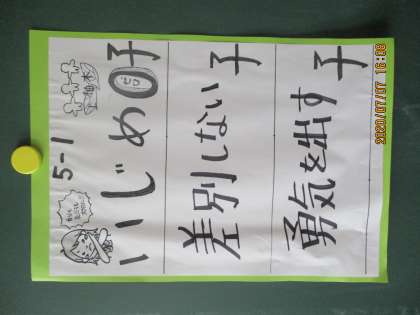 5-1
いじめ0子
差別しない子
勇気を出す子
2020/07/07 16:09